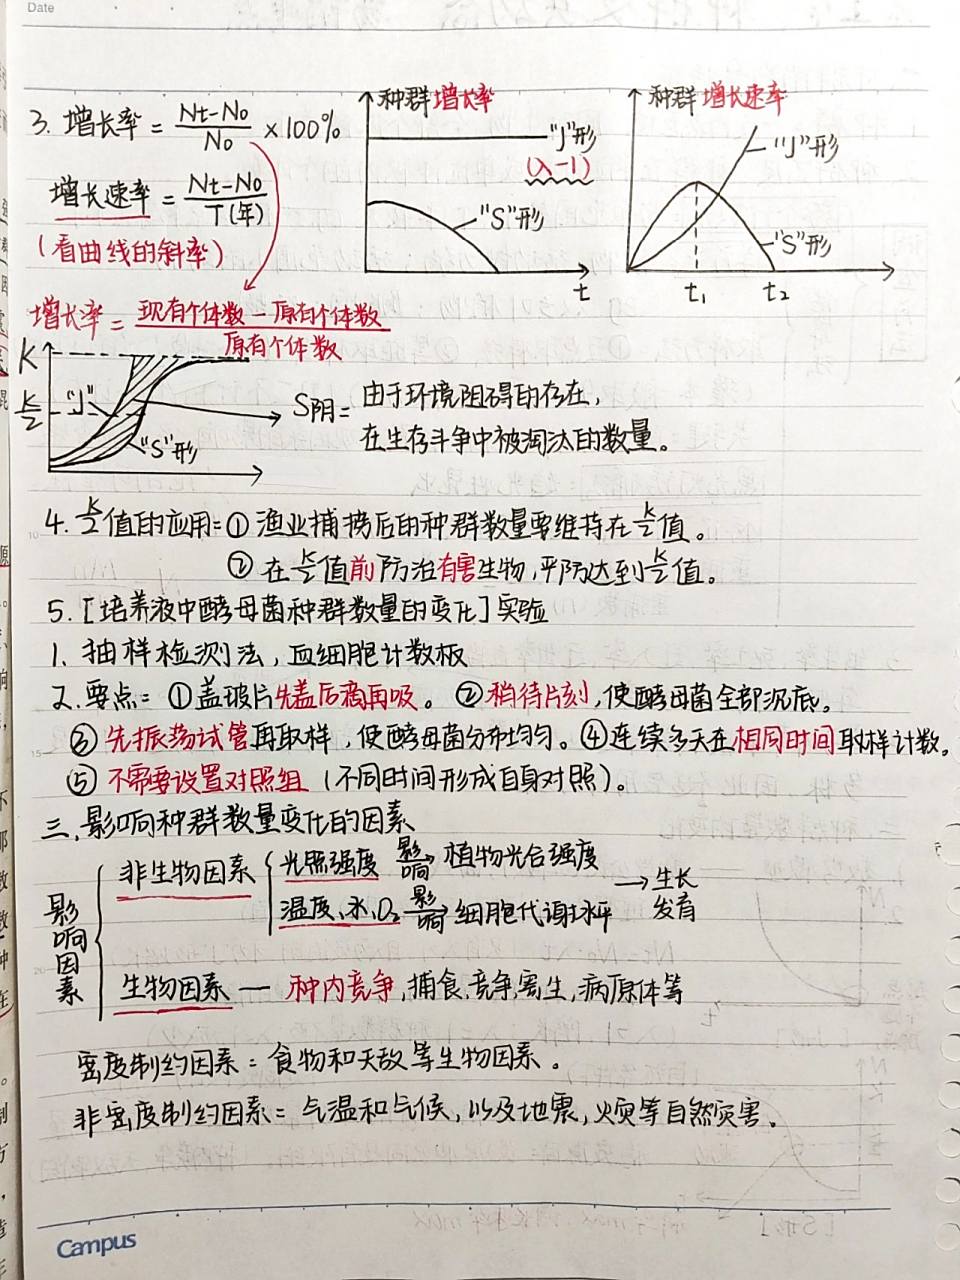 Date
3. 增长率 = Nt-N0/N0 ×100%
增长速率 = Nt-N0/T(年)
(看曲线的斜率)
种群增长率
"J"形
(λ-1)
"S"形
t
种群增长速率
"J"形
"S"形
t1 t2
增长率 = 现有个体数 - 原有个体数/原有个体数
K
K/2
"J"
"S"形
S阴 = 由于环境阻碍的存在,
在生存斗争中被淘汰的数量。
4. K/2值的应用 = ① 渔业捕捞后的种群数量要维持在K/2值。
② 在K/2值前防治有害生物,严防达到K/2值。
5. [培养液中酵母菌种群数量的变化] 实验
1. 抽样检测法, 血细胞计数板
2. 要点 = ①盖玻片先盖后滴再吸。 ②稍待片刻,使酵母菌全部沉底。
③ 先振荡试管再取样,使酵母菌分布均匀。④连续多天在相同时间取样计数。
⑤ 不需要设置对照组 (不同时间形成自身对照)。
三、影响种群数量变化的因素
影响因素
非生物因素
光照强度 影响→ 植物光合强度
温度、水、O2 影响→ 细胞代谢水平
→生长发育
生物因素 — 种内竞争,捕食,竞争,寄生,病原体等
密度制约因素 = 食物和天敌等生物因素。
非密度制约因素 = 气温和气候,以及地震,火灾等自然灾害。
Campus